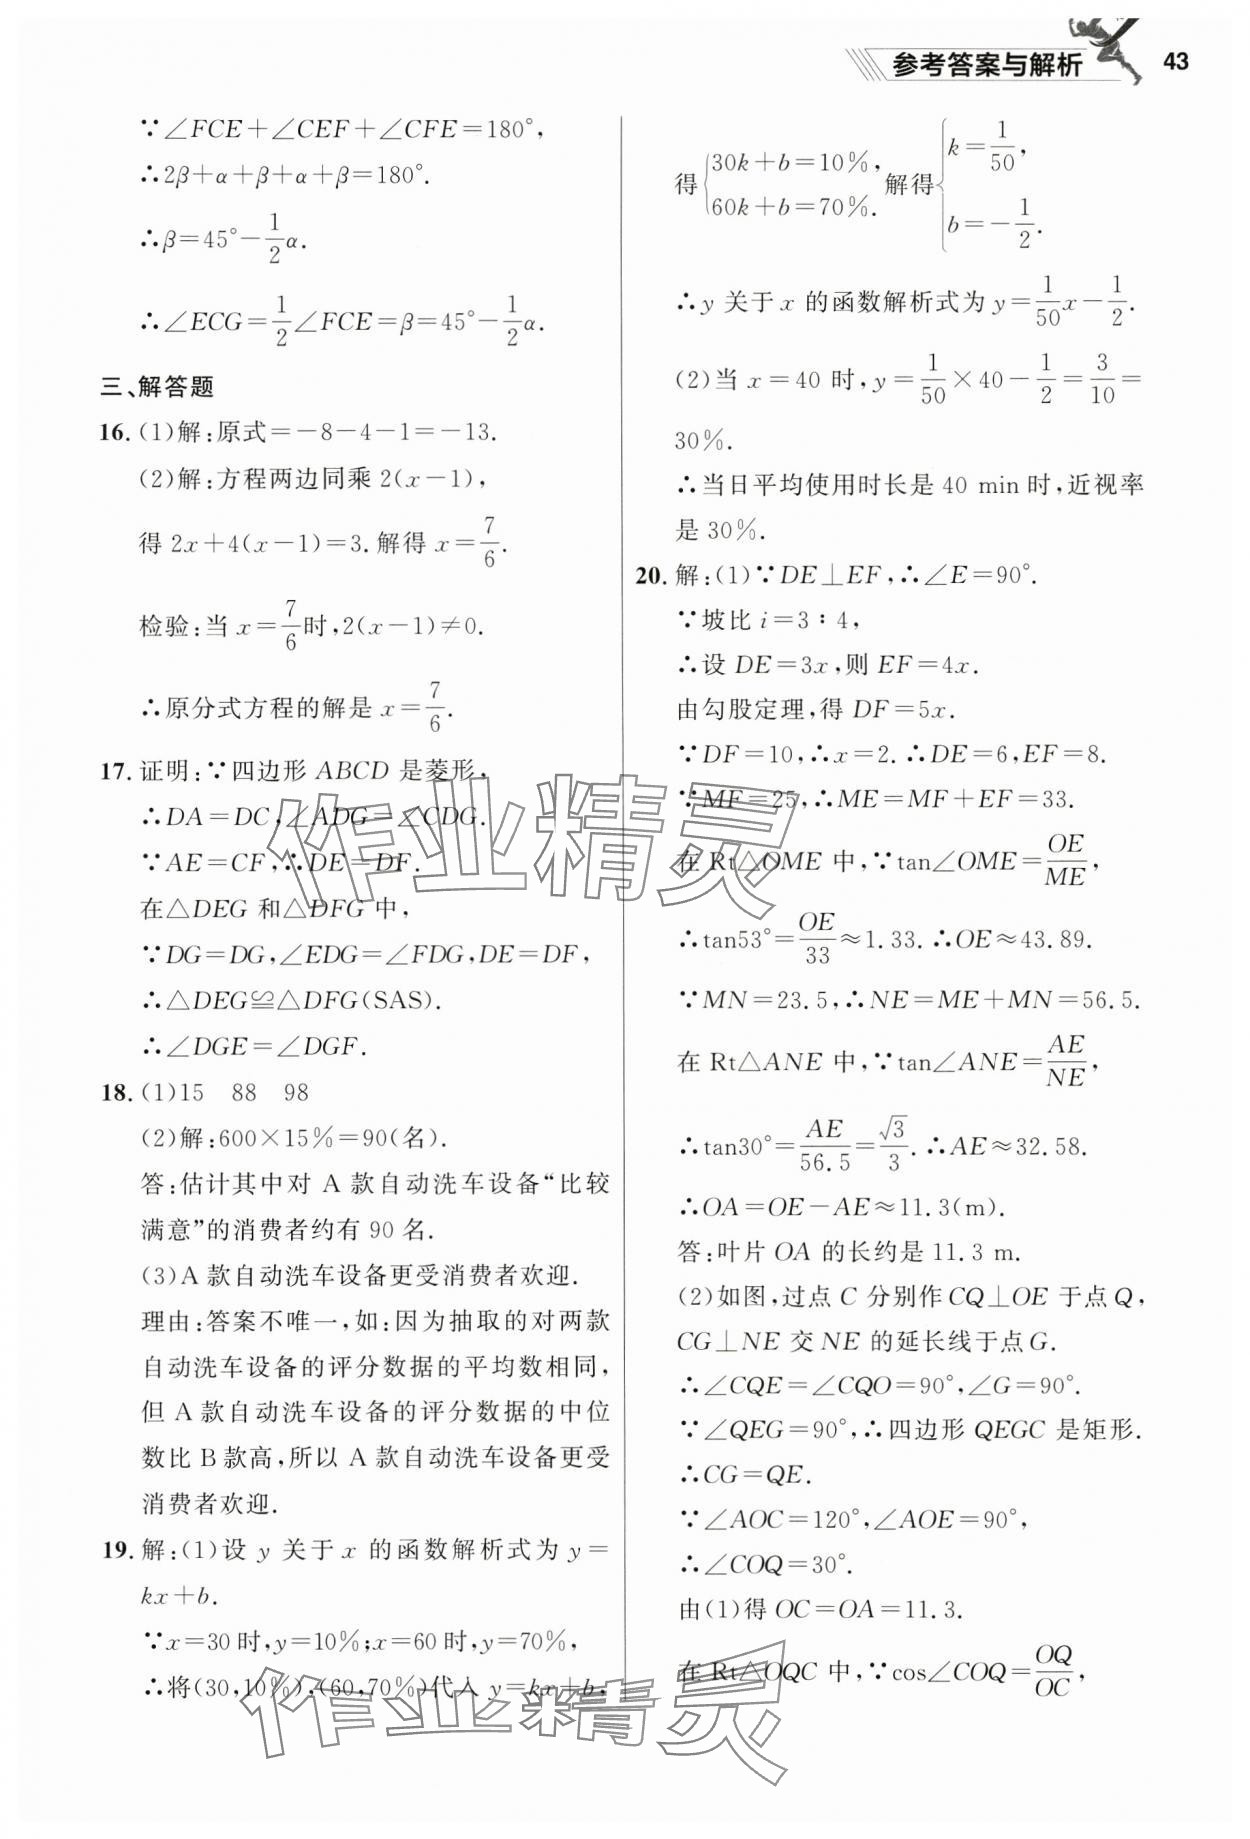 参考答案与解析 43
∵∠FCE＋∠CEF＋∠CFE＝180°,
∴2β＋α＋β＋α＋β＝180°.
∴β＝45°－1/2α.
∴∠ECG＝1/2∠FCE＝β＝45°－1/2α.
三、解答题
16. (1)解:原式＝－8－4－1＝－13.
(2)解:方程两边同乘 2(x－1),
得 2x＋4(x－1)＝3.解得 x＝7/6.
检验:当 x＝7/6时,2(x－1)≠0.
∴原分式方程的解是 x＝7/6.
17. 证明:∵四边形 ABCD 是菱形,
∴DA＝DC,∠ADG＝∠CDG.
∵AE＝CF,∴DE＝DF.
在△DEG 和△DFG 中,
∵DG＝DG,∠EDG＝∠FDG,DE＝DF,
∴△DEG≌△DFG(SAS).
∴∠DGE＝∠DGF.
18. (1)15 88 98
(2)解:600×15%＝90(名).
答:估计其中对 A 款自动洗车设备“比较
满意”的消费者约有 90 名.
(3)A 款自动洗车设备更受消费者欢迎.
理由:答案不唯一,如:因为抽取的对两款
自动洗车设备的评分数据的平均数相同,
但 A 款自动洗车设备的评分数据的中位
数比 B 款高,所以 A 款自动洗车设备更受
消费者欢迎.
19. 解:(1)设 y 关于 x 的函数解析式为 y＝
kx＋b.
∵x＝30 时,y＝10%;x＝60 时,y＝70%,
∴将(30,10%),(60,70%)代入 y＝kx＋b,
得{30k＋b＝10%, 60k＋b＝70%. 解得{k＝1/50, b＝－1/2.
∴y 关于 x 的函数解析式为 y＝1/50x－1/2.
(2)当 x＝40 时,y＝1/50×40－1/2＝3/10＝
30%.
∴当日平均使用时长是 40 min 时,近视率
是 30%.
20. 解:(1)∵DE⊥EF,∴∠E＝90°.
∵坡比 i＝3∶4,
∴设 DE＝3x,则 EF＝4x.
由勾股定理,得 DF＝5x.
∵DF＝10,∴x＝2.∴DE＝6,EF＝8.
∵MF＝25,∴ME＝MF＋EF＝33.
在 Rt△OME 中,∵tan∠OME＝OE/ME,
∴tan53°＝OE/33≈1.33.∴OE≈43.89.
∵MN＝23.5,∴NE＝ME＋MN＝56.5.
在 Rt△ANE 中,∵tan∠ANE＝AE/NE,
∴tan30°＝AE/56.5＝√3/3.∴AE≈32.58.
∴OA＝OE－AE≈11.3(m).
答:叶片 OA 的长约是 11.3 m.
(2)如图,过点 C 分别作 CQ⊥OE 于点 Q,
CG⊥NE 交 NE 的延长线于点 G.
∴∠CQE＝∠CQO＝90°,∠G＝90°.
∵∠QEG＝90°,∴四边形 QEGC 是矩形.
∴CG＝QE.
∵∠AOC＝120°,∠AOE＝90°,
∴∠COQ＝30°.
由(1)得 OC＝OA＝11.3.
在 Rt△OQC 中,∵cos∠COQ＝OQ/OC,
作业精灵
作业精灵